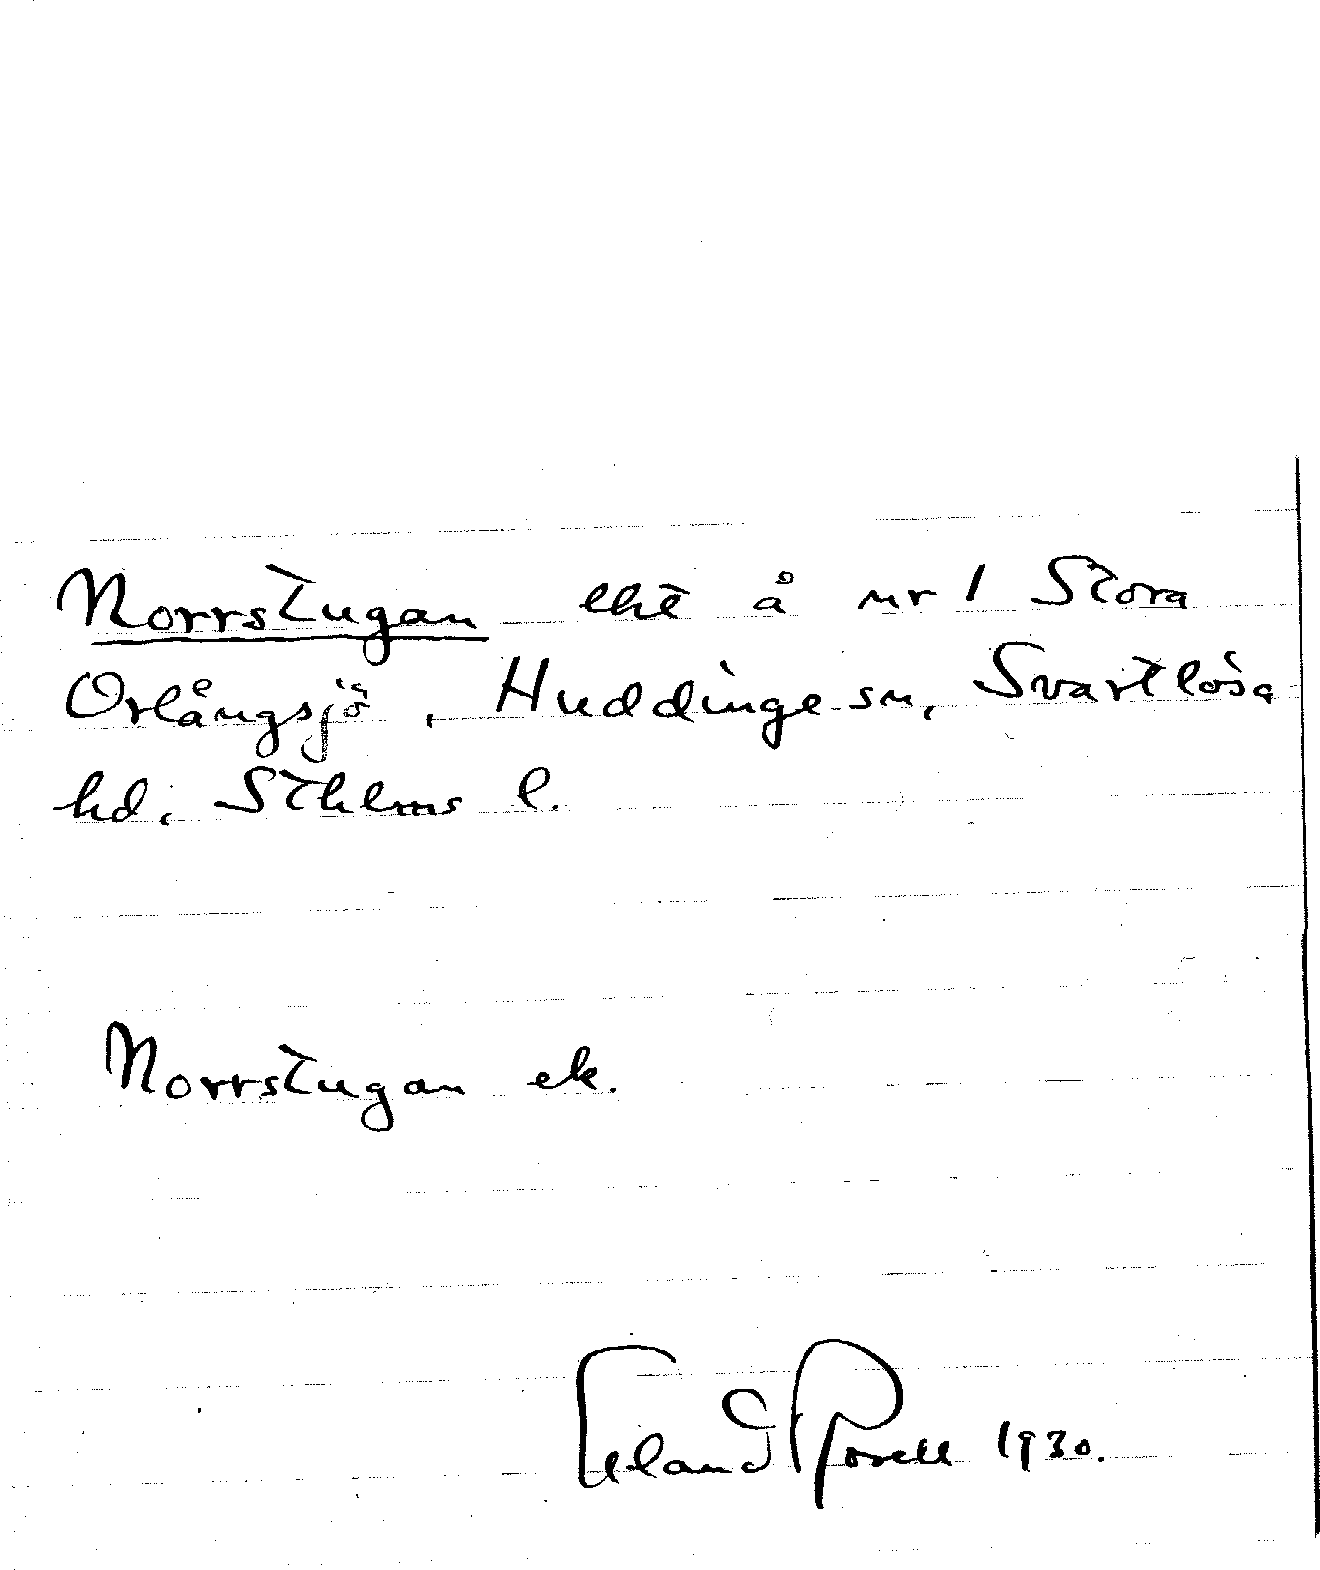 Norrstugan eht å nr 1 Stora
Orlångsjö, Huddinge sn, Svartlösa
hd, Sthlms l.
Norrstugan ek.
Erland Rosell 1930.